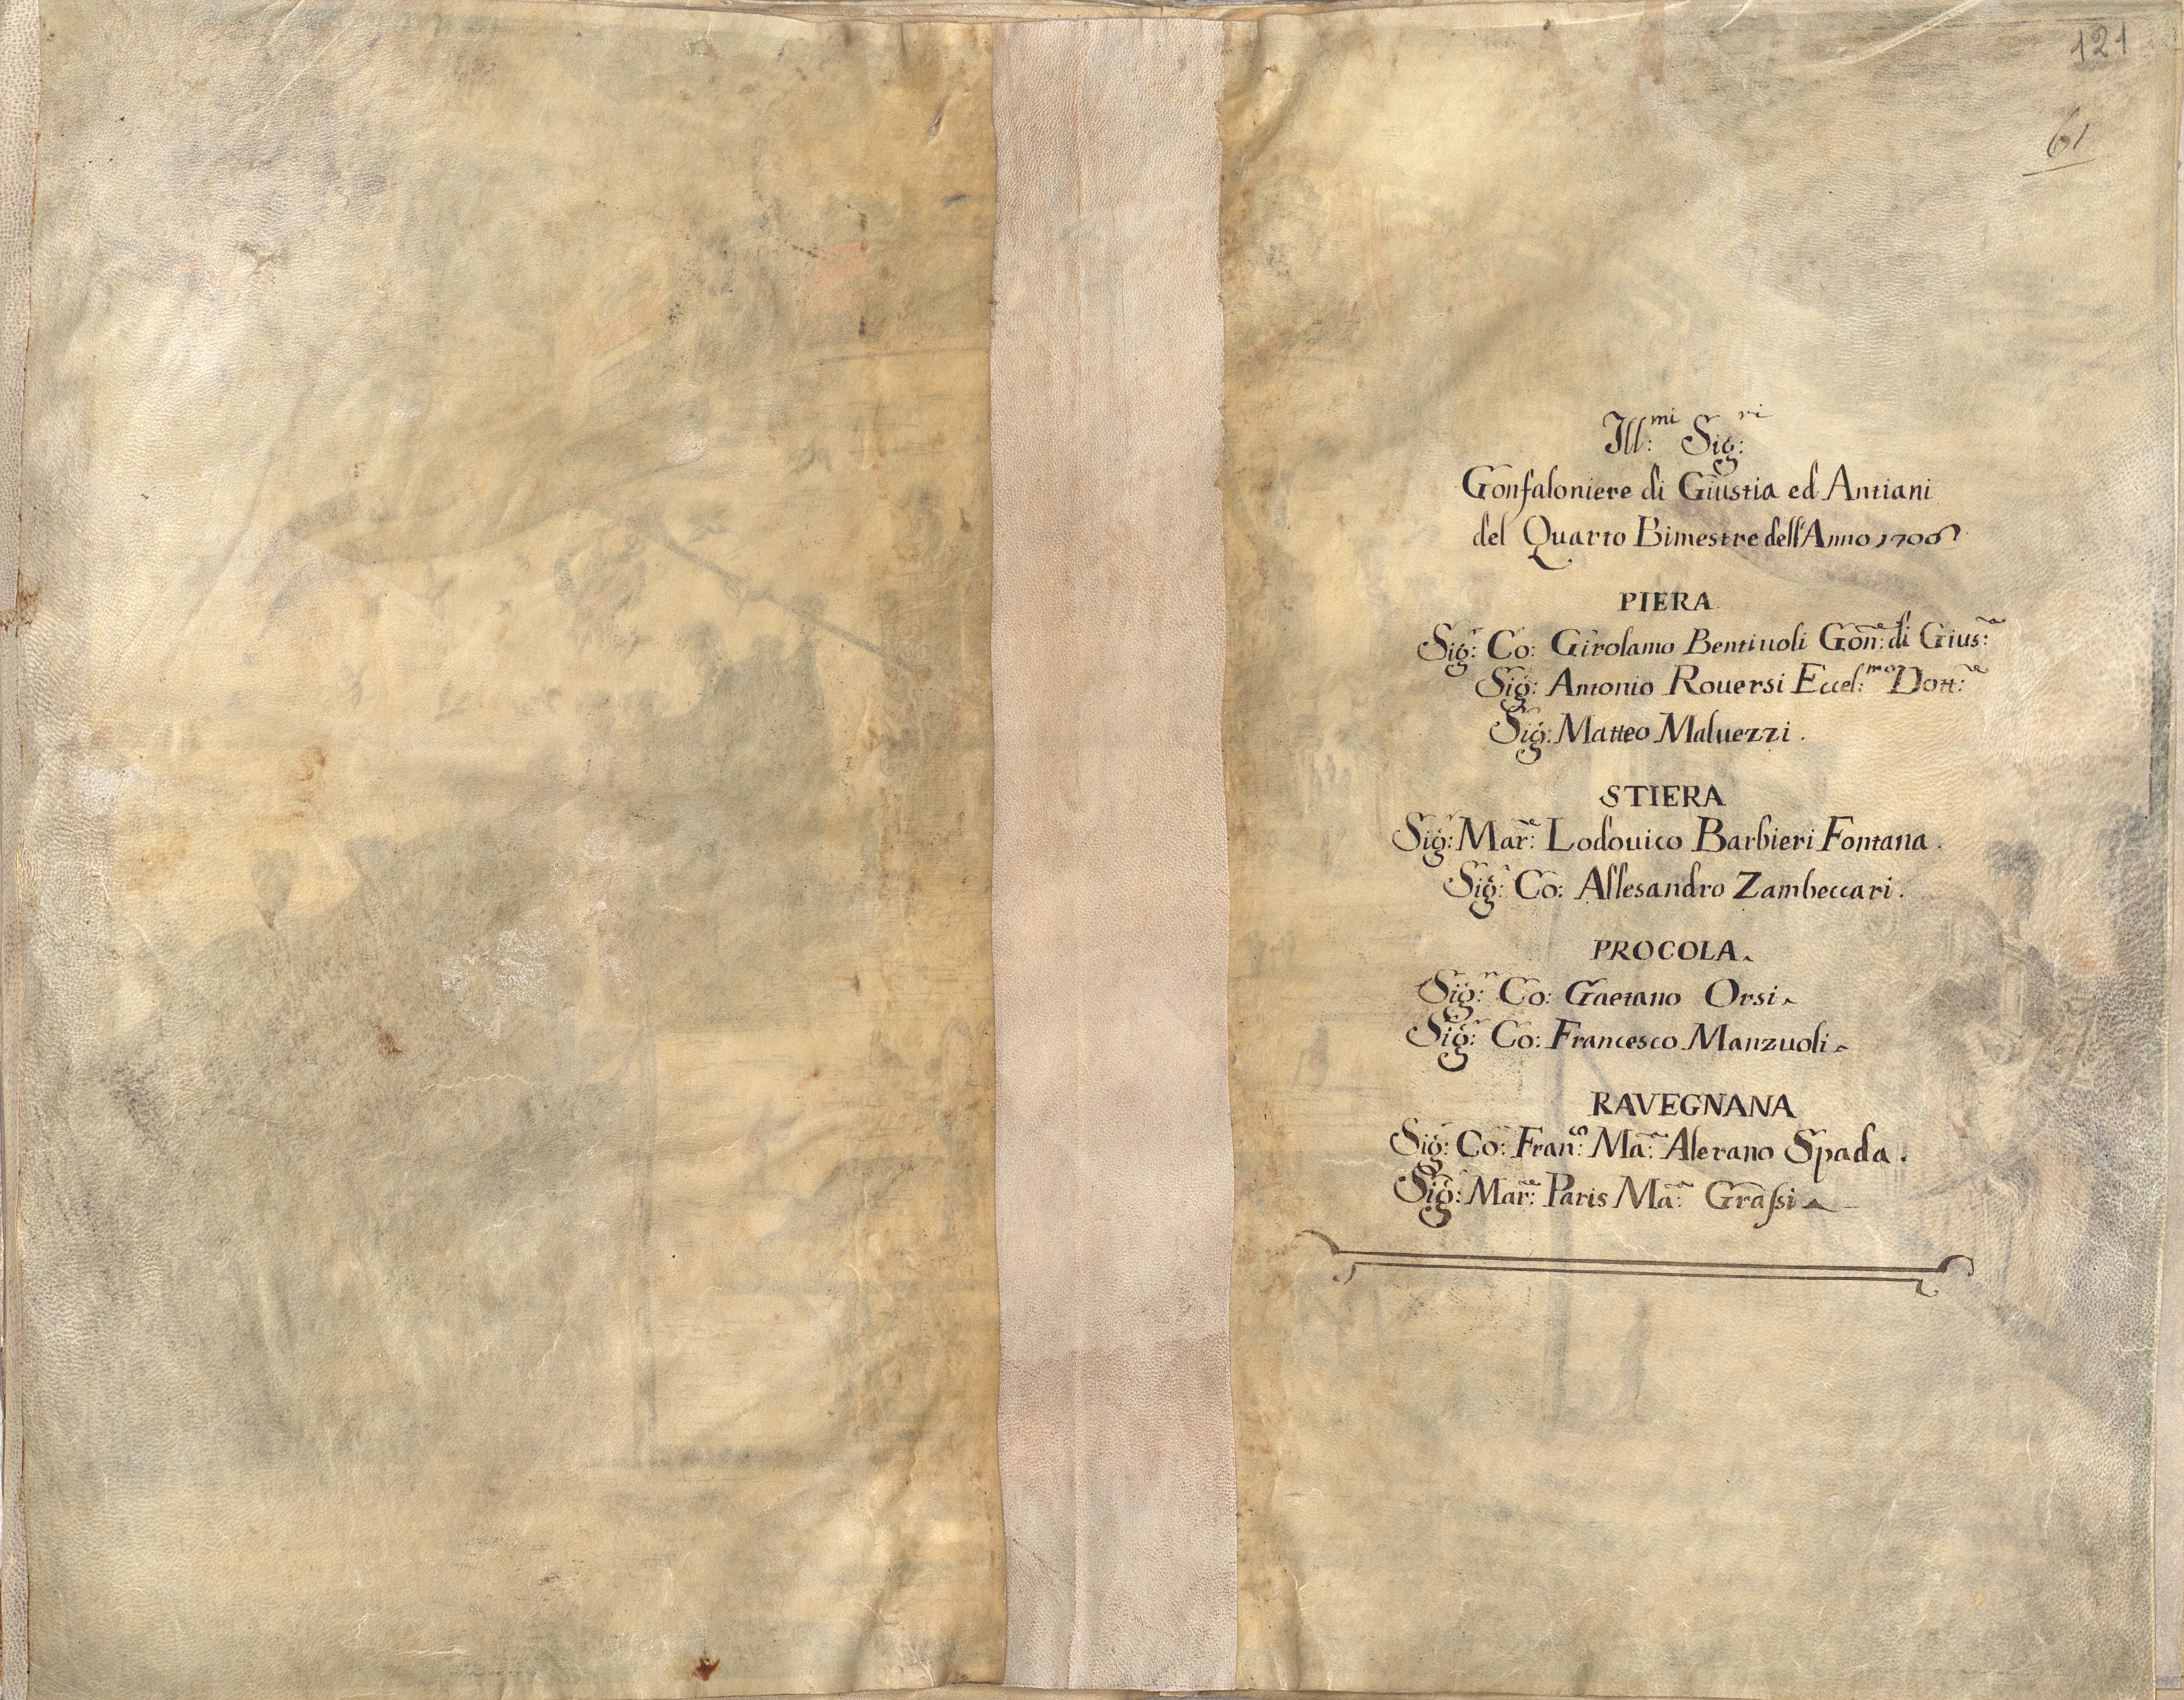 121
61
Ill:mi Sig:ri
Gonfaloniere di Giustia ed Antiani
del Quarto Bimestre dell'Anno 1706
PIERA
Sig:r Co: Girolamo Bentiuoli Gon:e di Gius:a
Sig:r Antonio Rouersi Eccel:mo Dott:re
Sig:r Matteo Maluezzi.
STIERA
Sig:r Mar:e Lodouico Barbieri Fontana.
Sig:r Co: Allesandro Zambeccari.
PROCOLA.
Sig:r Co: Gaetano Orsi.
Sig:r Co: Francesco Manzuoli.
RAVEGNANA
Sig:r Co: Fran:co Ma:a Alerano Spada.
Sig:r Mar:e Paris Ma:a Graſsi